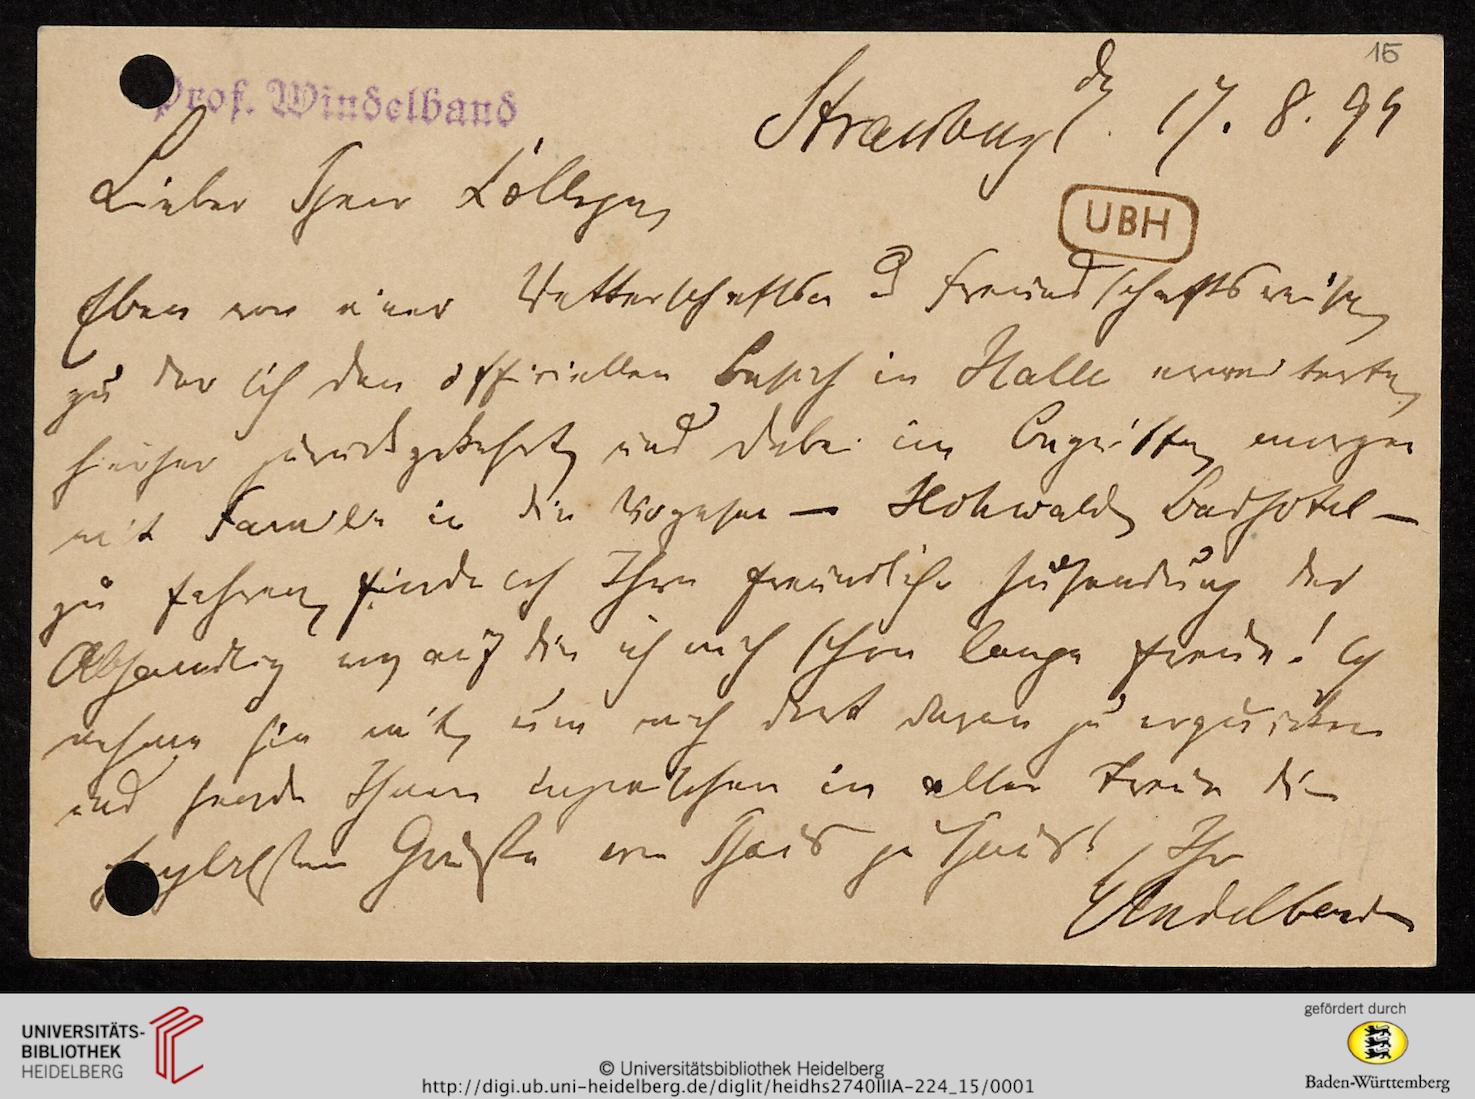 15
Prof. Windelband
Strassburg d. 17. 8. 94
Lieber Herr College,
Eben von einer Vetterschafts- u Freundschaftsreise,
zu der ich den officiellen Besuch in Halle erweiterte,
hierher zurückgekehrt, und dabei im Begriffe, morgen
mit Familie in die Vogesen — Hohwald, Badhotel —
zu fahren, finde ich Ihre freundliche Zusendung der
Abhandlung vor, auf die ich mich schon lange freue! Ich
nehme sie mit, um mich dort daran zu erquicken
und sende Ihnen inzwischen in aller Treue die
herzlichsten Grüsse von Haus zu Haus! Ihr
Windelband
UBH
UNIVERSITÄTS-
BIBLIOTHEK
HEIDELBERG
© Universitätsbibliothek Heidelberg
http://digi.ub.uni-heidelberg.de/diglit/heidhs2740IIIA-224_15/0001
gefördert durch
Baden-Württemberg